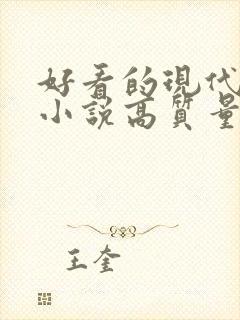 好看的現代
小説高質量
王奎